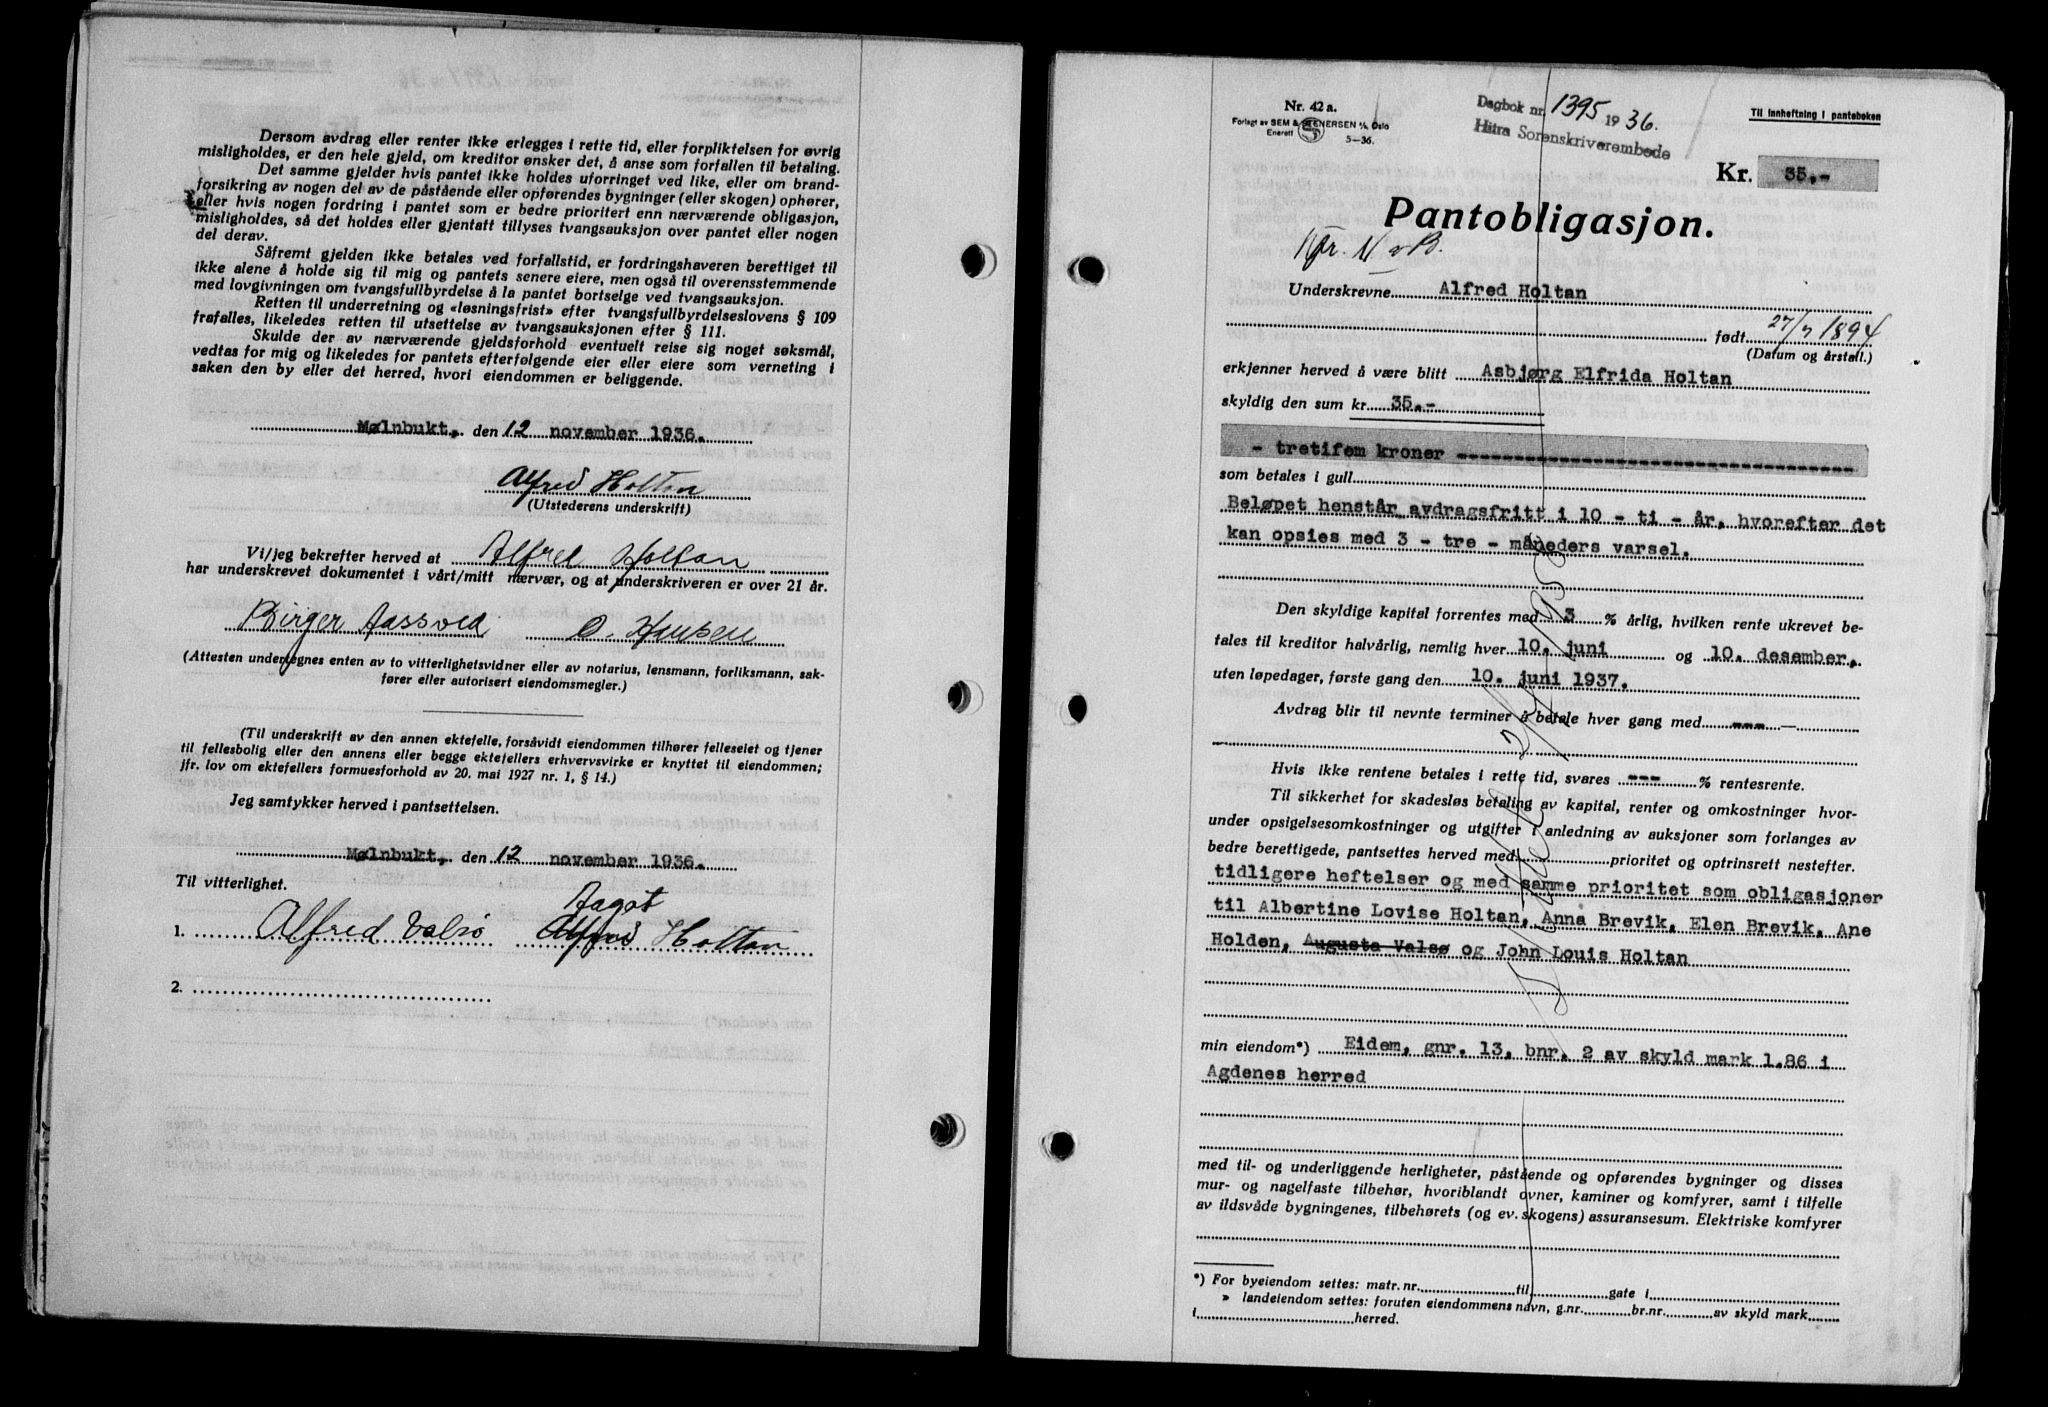 Dersom avdrag eller renter ikke erlegges i rette tid, eller forpliktelsen for øvrig
misligholdes, er den hele gjeld, om kreditor ønsker det, å anse som forfallen til betaling.
Det samme gjelder hvis pantet ikke holdes uforringet ved like, eller om brand-
forsikring av nogen del av de påstående eller opførendes bygninger (eller skogen) ophører,
eller hvis nogen fordring i pantet som er bedre prioritert enn nærværende obligasjon,
misligholdes, så det holdes eller gjentatt tillyses tvangsauksjon over pantet eller nogen
del derav.
Såfremt gjelden ikke betales ved forfallstid, er fordringshaveren berettiget til
ikke alene å holde sig til mig og pantets senere eiere, men også til overensstemmende
med lovgivningen om tvangsfullbyrdelse å la pantet bortselge ved tvangsauksjon.
Retten til underretning og «løsningsfrist» efter tvangsfullbyrdelseslovens § 109
frafalles, likeledes retten til utsettelse av tvangsauksjonen efter § 111.
Skulde der av nærværende gjeldsforhold eventuelt reise sig noget søksmål,
vedtas for mig og likeledes for pantets efterfølgende eier eller eiere som verneting i
saken den by eller det herred, hvori eiendommen er beliggende.
Mølnbukt, den 12 november 1936.
Alfred Holtan
(Utstederens underskrift)
Vi/jeg bekrefter herved at Alfred Holtan
har underskrevet dokumentet i vårt/mitt nærvær, og at underskriveren er over 21 år.
Birger Aassved O. Hansen
(Attesten undertegnes enten av to vitterlighetsvidner eller av notarius, lensmann, forliksmann, sak-
fører eller autorisert eiendomsmegler.)
(Til underskrift av den annen ektefelle, forsåvidt eiendommen tilhører felleseiet og tjener
til fellesbolig eller den annens eller begge ektefellers erhvervsvirke er knyttet til eiendommen;
jfr. lov om ektefellers formuesforhold av 20. mai 1927 nr. 1, § 14.)
Jeg samtykker herved i pantsettelsen.
Mølnbukt, den 12 november 1936.
Til vitterlighet.
Aagot
1. Alfred Valsø Alfred Holtan
2.
Nr. 42 a.
Forlagt av SEM & STENERSEN A/S, Oslo
Enerett
5-36.
Dagbok nr. 1395 1936.
Hitra Sorenskriverembede
Til innheftning i panteboken
Kr. 35,-
Pantobligasjon.
Underskrevne Alfred Holtan
født 27/7 1894
(Datum og årstall.)
erkjenner herved å være blitt Asbjørg Elfrida Holtan
skyldig den sum kr. 35.-
- trettifem kroner
som betales i gull
Beløpet henstår avdragsfritt i 10 - ti - år, hvorefter det
kan opsies med 3 - tre - måneders varsel.
Den skyldige kapital forrentes med 3 % årlig, hvilken rente ukrevet be-
tales til kreditor halvårlig, nemlig hver 10. juni og 10. desember,
uten løpedager, første gang den 10. juni 1937.
Avdrag blir til nevnte terminer å betale hver gang med --- -
Hvis ikke rentene betales i rette tid, svares --- % rentesrente.
Til sikkerhet for skadesløs betaling av kapital, renter og omkostninger hvor-
under opsigelsesomkostninger og utgifter i anledning av auksjoner som forlanges av
bedre berettigede, pantsettes herved med prioritet og optrinsrett nestefter.
tidligere heftelser og med samme prioritet som obligasjoner
til Albertine Lovise Holtan, Anna Brevik, Elen Brevik, Ane
Holden, Augusta Valsø og John Louis Holtan
min eiendom*) Eidem, gnr. 13, bnr. 2 av skyld mark 1.86 i
Agdenes herred
med til- og underliggende herligheter, påstående og opførendes bygninger og disses
mur- og nagelfaste tilbehør, hvoriblandt ovner, kaminer og komfyrer, samt i tilfelle
av ildsvåde bygningenes, tilbehørets (og ev. skogens) assuransesum. Elektriske komfyrer
*) For byeiendom settes: matr. nr. til gate i
» landeiendom settes: foruten eiendommens navn, g.nr. br.nr. av skyld mark
i herred.